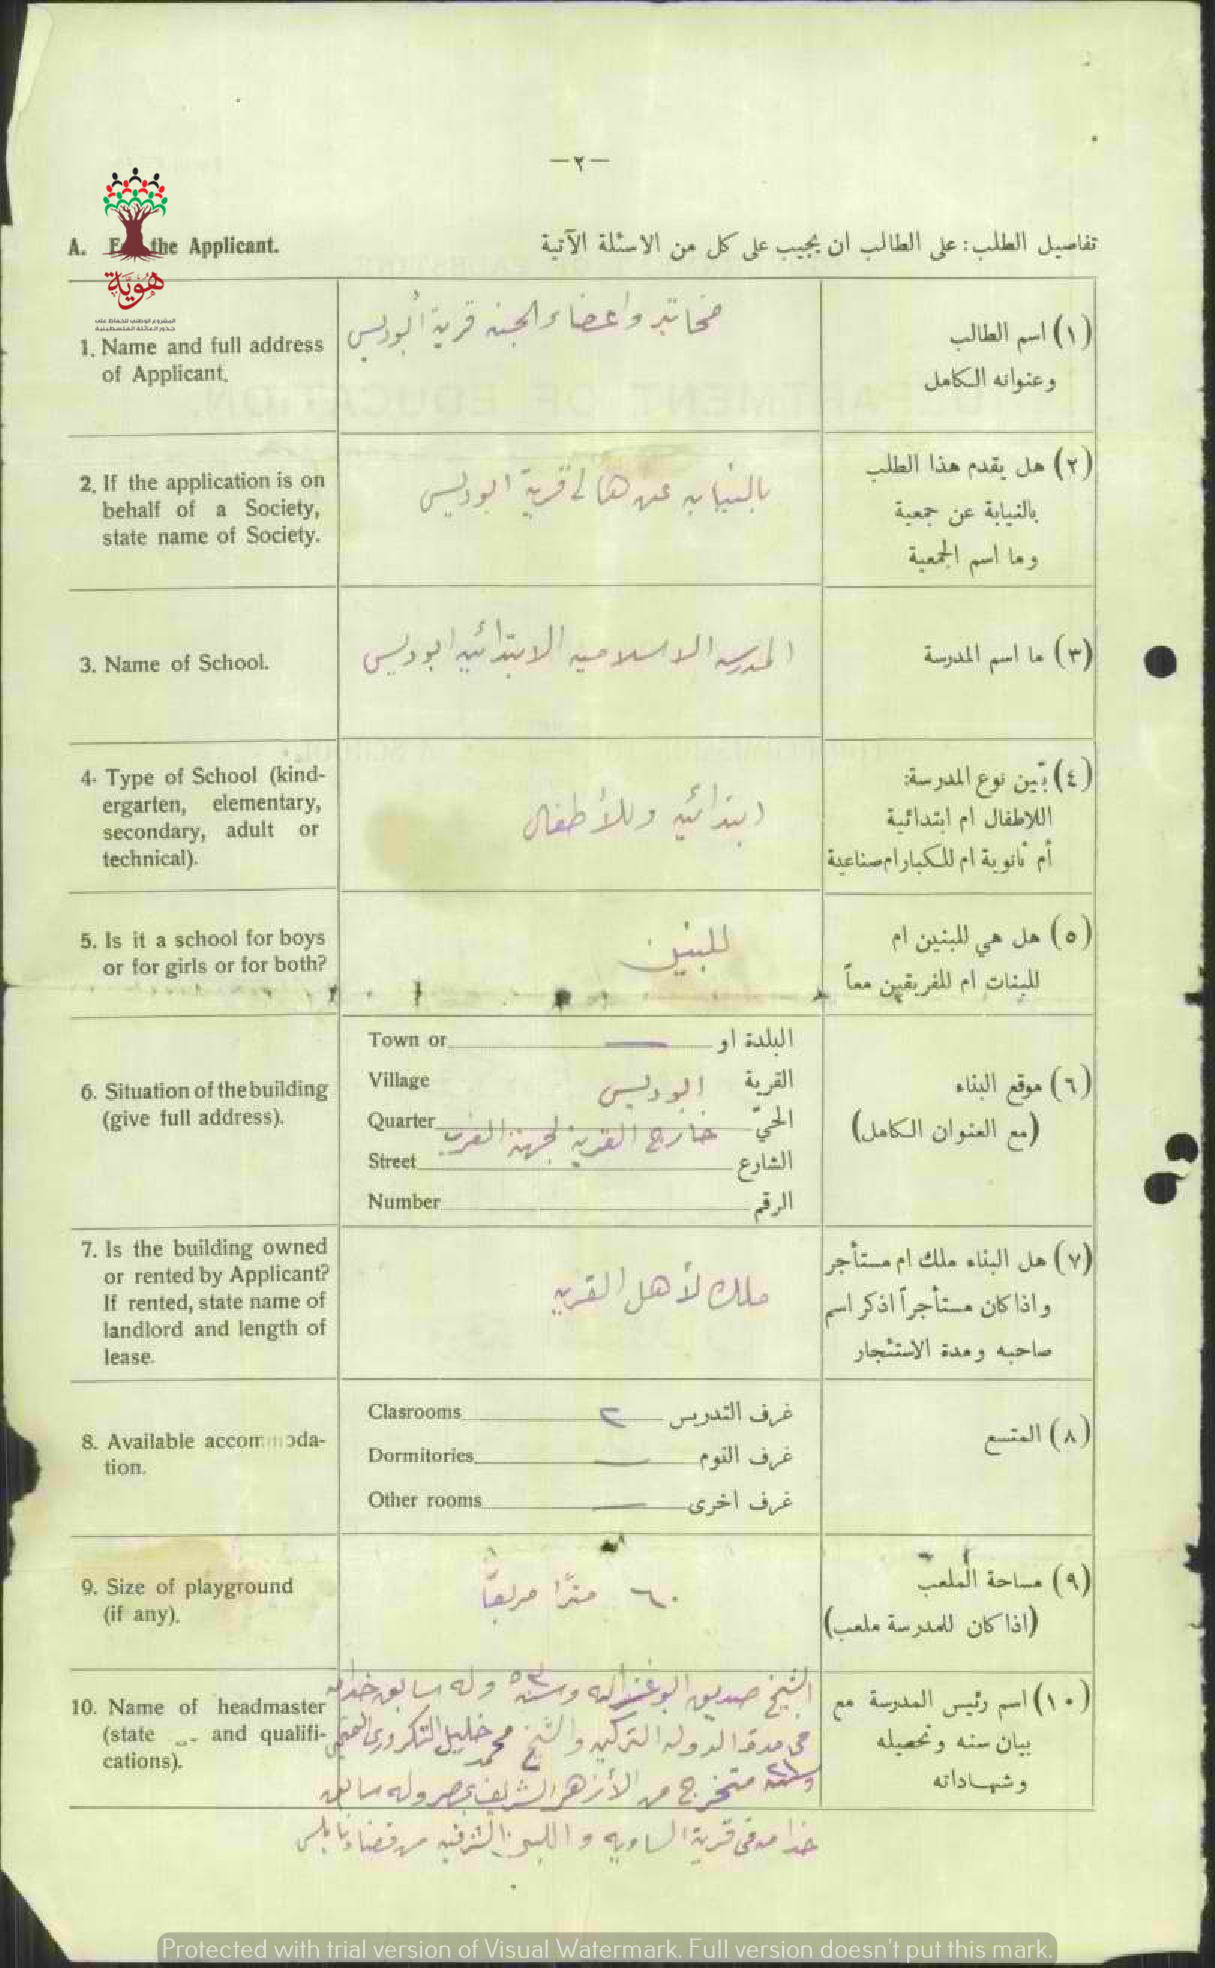 —٢—
A. For the Applicant.
تفاصيل الطلب: على الطالب ان يجيب على كل من الاسئلة الآتية
هوية
المشروع الوطني للحفاظ على
جذور العائلة الفلسطينية
1. Name and full address
of Applicant.
مخاتير واعضاء لجنه قرية أبوديس
(١) اسم الطالب
وعنوانه الكامل
2. If the application is on
behalf of a Society,
state name of Society.
بالنيابه عن اهالي قرية ابوديس
(٢) هل يقدم هذا الطلب
بالنيابة عن جمعية
وما اسم الجمعية
3. Name of School.
المدرسه الاسلاميه الابتدائيه ابوديس
(٣) ما اسم المدرسة
4. Type of School (kind-
ergarten, elementary,
secondary, adult or
technical).
ابتدائيه وللأطفال
(٤) بّين نوع المدرسة:
اللاطفال ام ابتدائية
أم ثانوية ام للكبار ام صناعية
5. Is it a school for boys
or for girls or for both?
للبنين
(٥) هل هي للبنين ام
للبنات ام للفريقين معاً
6. Situation of the building
(give full address).
Town or — البلدة او
Village ابوديس القرية
Quarter خارج القرية لجهة الغرب الحيّ
Street الشارع
Number الرقم
(٦) موقع البناء
(مع العنوان الكامل)
7. Is the building owned
or rented by Applicant?
If rented, state name of
landlord and length of
lease.
ملك لأهل القريه
(٧) هل البناء ملك ام مستأجر
واذا كان مستأجراً اذكر اسم
صاحبه ومدة الاستئجار
8. Available accommoda-
tion.
Clasrooms ٢ غرف التدريس
Dormitories — غرف النوم
Other rooms — غرف اخرى
(٨) المتسع
9. Size of playground
(if any).
٦٠ مترًا مربعًا
(٩) مساحة الملعب
(اذا كان للمدرسة ملعب)
10. Name of headmaster
(state and qualifi-
cations).
الشيخ صديق ابو وله سابق خدامه
في مدة الدوله التركيه والشيخ محمد خليل التكروري
متخرج من الأزهر الشريف بمصر وله سابق
خدامه في قرية الساويه و اللبن الشرقيه من قضاء نابلس
(١٠) اسم رئيس المدرسة مع
بيان سنه وتحصيله
وشهاداته
Protected with trial version of Visual Watermark. Full version doesn't put this mark.